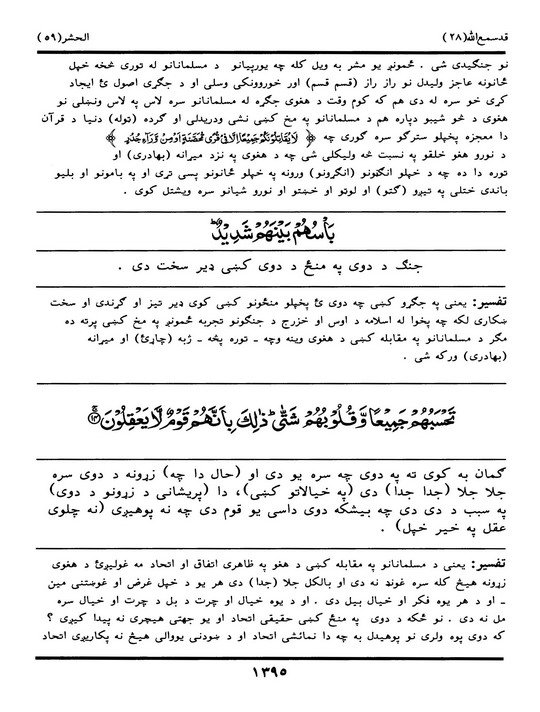 قدسمع الله (٢٨)
الحشر (٥٩)
نو جنګیدی شی . ځمونږ یو مشر به ویل کله چه یورپیانو د مسلمانانو له توری څخه خپل
ځانونه عاجز ولیدل نو راز راز (قسم قسم) اور خوروونکی وسلی او د جګړی اصول ئ ایجاد
کړی خو سره له دی هم که کوم وقت د هغوی جګړه له مسلمانانو سره لاس په لاس ونښلی نو
هغوی د څو شیبو دپاره هم د مسلمانانو په مخ کښی نشی ودریدلی او ګرده (ټوله) دنیا د قرآن
دا معجزه پخپلو سترګو سره ګوری چه ﴿ لَا يُقَاتِلُونَكُمْ جَمِيعًا إِلَّا فِي قُرًى مُحَصَّنَةٍ أَوْ مِنْ وَرَاءِ جُدُرٍ ﴾
د نورو هغو خلقو په نسبت څه ولیکلی شی چه د هغوی په نزد میرانه (بهادری) او
توره دا ده چه د خپلو انګڼونو (انګړونو) ورونه په خپلو ځانونو پسی تړی او په بامونو او بلیو
باندی ختلی په تیږو (ګټو) او لوټو او خښتو او نورو شیانو سره ویشتل کوی .
بَأْسُهُمْ بَيْنَهُمْ شَدِيدٌ ط
جنګ د دوی په منځ د دوی کښی ډیر سخت دی .
تفسیر: یعنی په جګړو کښی چه دوی ئ پخپلو منځونو کښی کوی ډیر تیز او ګړندی او سخت
ښکاری لکه چه پخوا له اسلامه د اوس او خزرج د جنګونو تجربه ځمونږ په مخ کښی پرته ده
مګر د مسلمانانو په مقابله کښی د هغوی وینه وچه ـ توره پخه ـ ژبه (چاړئ) او میړانه
(بهادری) ورکه شی .
تَحْسَبُهُمْ جَمِيعًا وَقُلُوبُهُمْ شَتَّىٰ ذَٰلِكَ بِأَنَّهُمْ قَوْمٌ لَا يَعْقِلُونَ ﴿١٤﴾
ګمان به کوی ته په دوی چه سره یو دی او (حال دا چه) زړونه د دوی سره
جلا جلا (جدا جدا) دی (په خیالاتو کښی)، دا (پریشانی د زړونو د دوی)
په سبب د دی دی چه بیشکه دوی داسی یو قوم دی چه نه پوهیږی (نه چلوی
عقل په خیر خپل) .
تفسیر: یعنی د مسلمانانو په مقابله کښی د هغو په ظاهری اتفاق او اتحاد مه غولیږئ د هغوی
زړونه هیڅ کله سره غونډ نه دی او بالکل جلا (جدا) دی هر یو د خپل غرض او غوښتنی مین
ـ او د هر یوه فکر او خیال بیل دی . او د یوه خیال او چرت د بل د چرت او خیال سره
مل نه دی . نو څکه د دوی په منځ کښی حقیقی اتحاد او یو جهتی هیچری نه پیدا کیږی ؟
که دوی پوه ولری نو پوهیدل به چه دا نمائشی اتحاد او د ښودنی یووالی هیڅ نه پکاریږی اتحاد
١٣٩٥